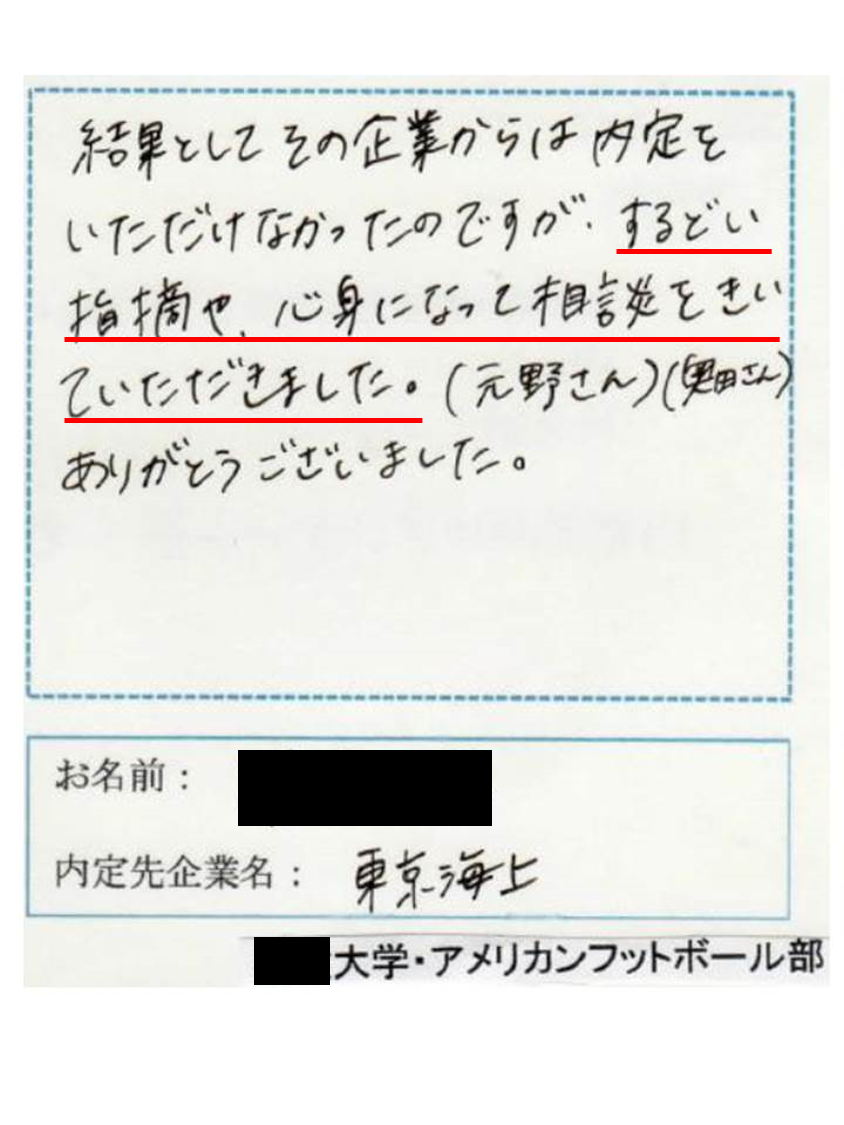 結果としてその企業からは内定を
いただけなかったのですが、するどい
指摘や、心身になって相談をきい
ていただきました。(元野さん)(奥田さん)
ありがとうございました。
お名前:
内定先企業名: 東京海上
大学・アメリカンフットボール部